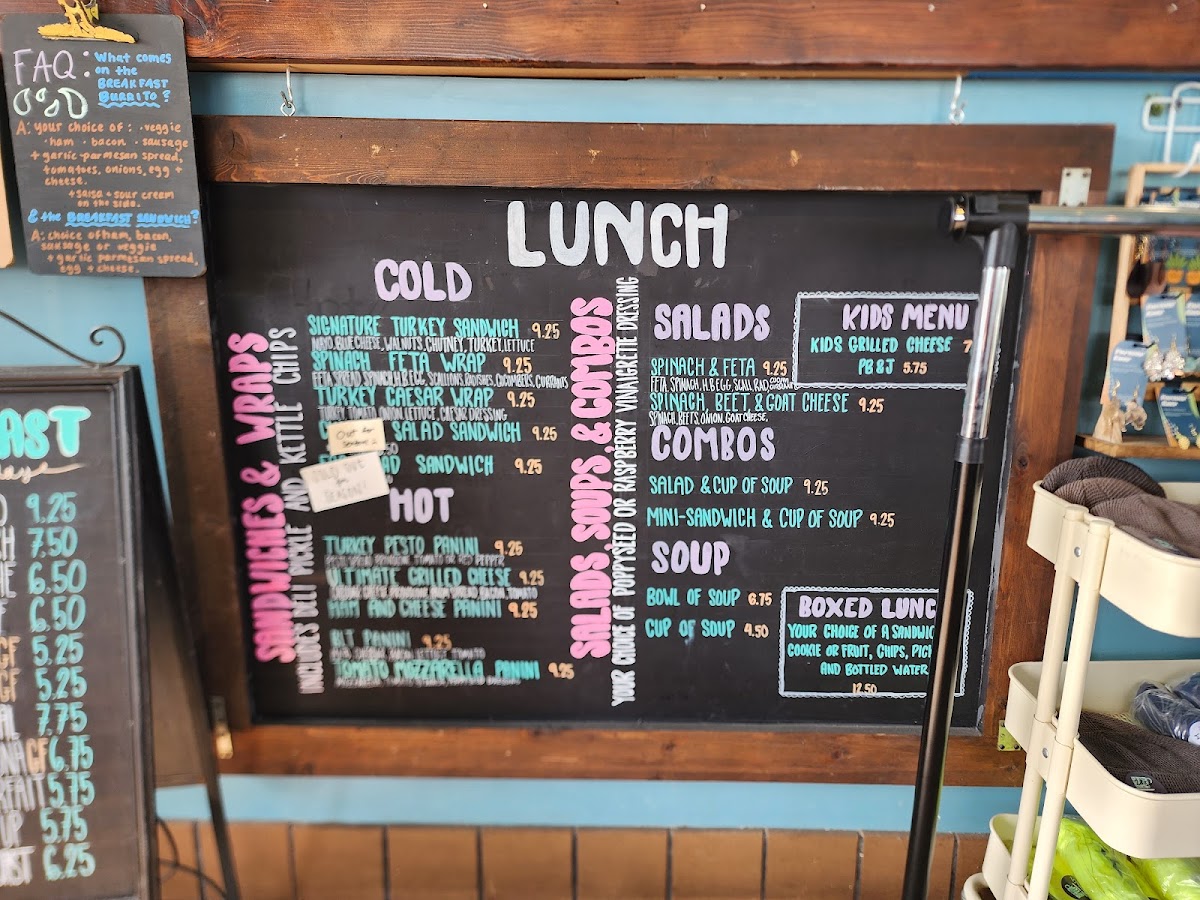 FAQ:
What comes
on the
BREAKFAST
BURRITO?
A: your choice of: · veggie
· ham · bacon · sausage
+ garlic-parmesan spread,
tomatoes, onions, egg +
cheese.
+ salsa + sour cream
on the side.
& the BREAKFAST SANDWICH?
A: choice of ham, bacon,
sausage or veggie
+ garlic parmesan spread,
egg + cheese.
AST
9.25
7.50
6.50
6.50
GF 5.25
GF 5.25
7.75
GF 6.75
5.75
5.75
6.25
LUNCH
SANDWICHES & WRAPS
INCLUDES DELI PICKLE AND KETTLE CHIPS
COLD
SIGNATURE TURKEY SANDWICH 9.25
MAYO, BLUE CHEESE, WALNUTS, CHUTNEY, TURKEY, LETTUCE
SPINACH FETA WRAP 9.25
FETA SPREAD, SPINACH, H.B. EGG, SCALLIONS, RADISHES, CUCUMBERS, CURRANTS
TURKEY CAESAR WRAP 9.25
TURKEY, TOMATO, ONION, LETTUCE, CAESAR DRESSING
SALAD SANDWICH 9.25
SANDWICH 9.25
HOT
TURKEY PESTO PANINI 9.25
PESTO SPREAD, PROVOLONE, TOMATO OR RED PEPPER
ULTIMATE GRILLED CHEESE 9.25
CHEDDAR CHEESE, PROVOLONE, ONION SPREAD, BACON, TOMATO
HAM AND CHEESE PANINI 9.25
BLT PANINI 9.25
TOMATO MOZZARELLA PANINI 9.25
SALADS, SOUPS, & COMBOS
YOUR CHOICE OF POPPYSEED OR RASPBERRY VINAIGRETTE DRESSING
SALADS
SPINACH & FETA 9.25
FETA, SPINACH, H.B. EGG, SCALL, RAD
SPINACH, BEET, & GOAT CHEESE 9.25
SPINACH, BEETS, ONION, GOAT CHEESE,
COMBOS
SALAD & CUP OF SOUP 9.25
MINI-SANDWICH & CUP OF SOUP 9.25
SOUP
BOWL OF SOUP 6.75
CUP OF SOUP 4.50
KIDS MENU
KIDS GRILLED CHEESE 7
PB&J 5.75
BOXED LUNC
YOUR CHOICE OF A SANDWIC
COOKIE OR FRUIT, CHIPS, PICK
AND BOTTLED WATER
12.50